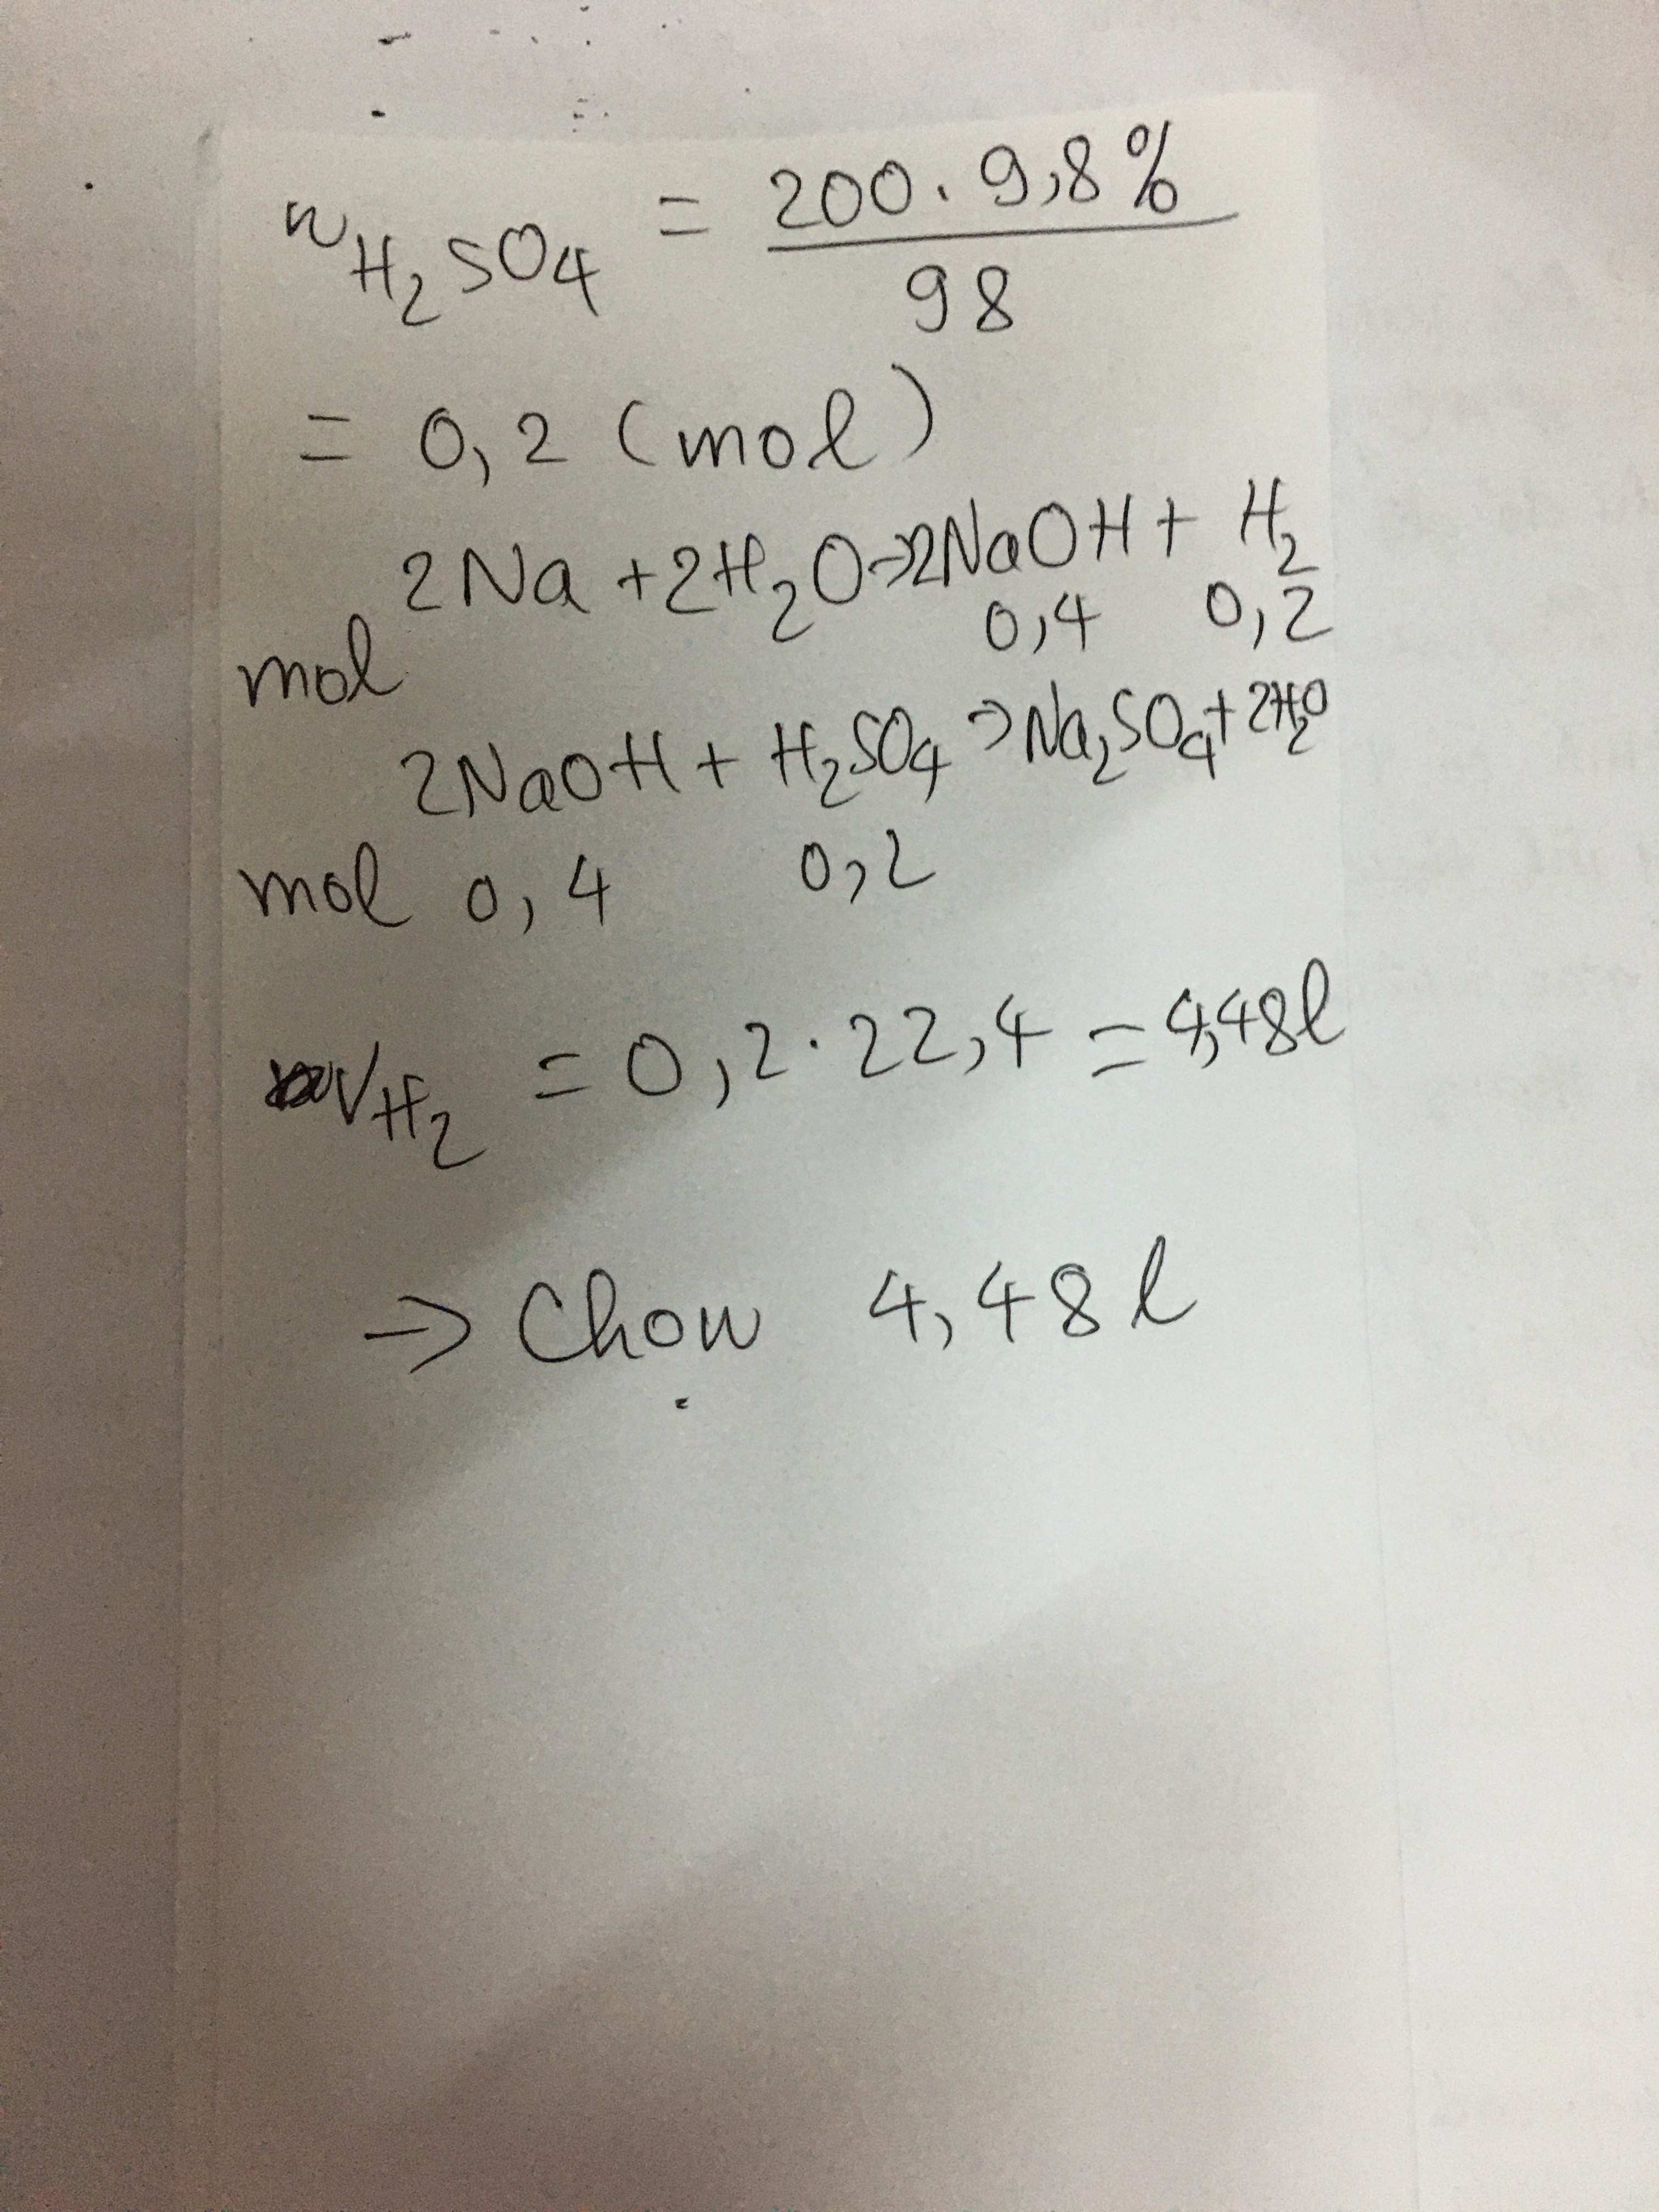 n H₂SO₄ = 200 . 9,8% / 98
= 0,2 (mol)
2Na + 2H₂O → 2NaOH + H₂
0,4 0,2
mol
2NaOH + H₂SO₄ → Na₂SO₄ + 2H₂O
mol 0,4 0,2
V H₂ = 0,2 . 22,4 = 4,48l
=> Chọn 4,48 l